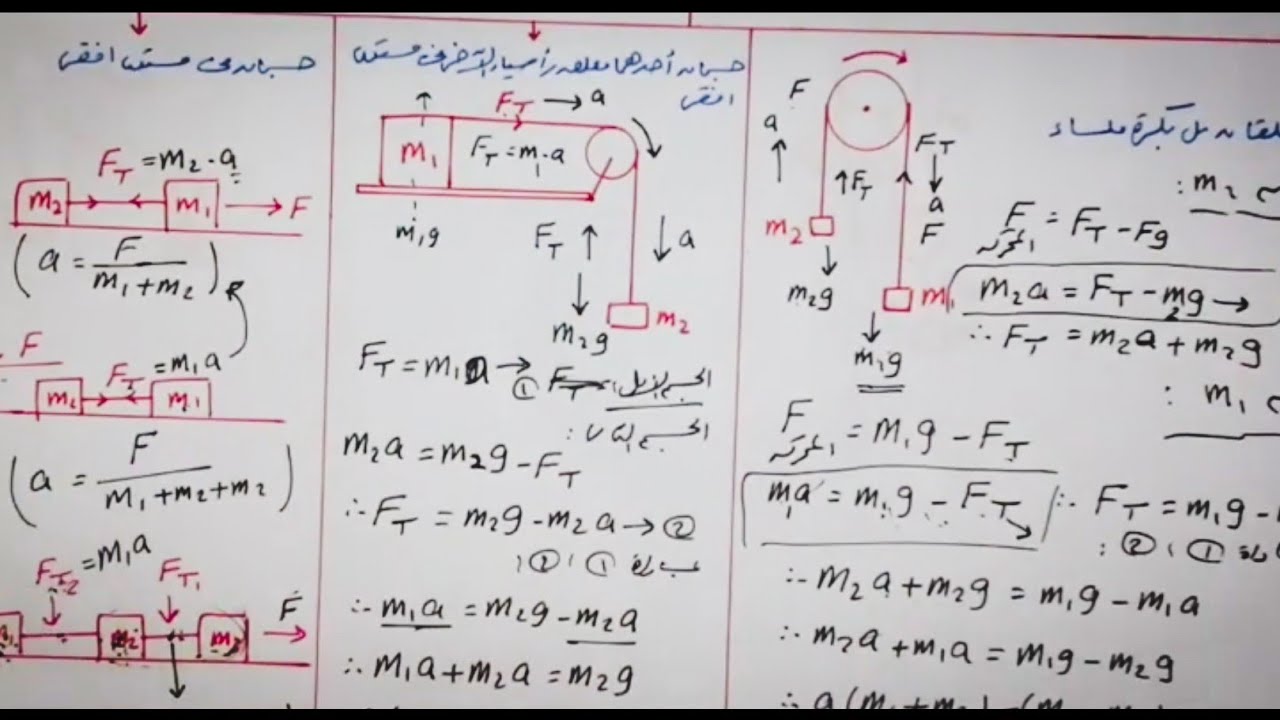 جسمان على مستوى افقى
F_T = m₂ . a
m₂ m₁ F
(a = F / m₁ + m₂)
F
F_T = m₁a
m₂ m₁
(a = F / m₁ + m₂ + m₂)
F_T₂ = m₁a F_T₁
F
m₂
جسمان أحدهما معلق رأسيا والآخر على مستوى
افقى
F_T → a
m₁ F_T = m₁ . a
m₁g
F_T a
m₂g m₂
F_T = m₁a → ①
الجسم الأول: F_T
الجسم الثانى:
m₂a = m₂g - F_T
∴ F_T = m₂g - m₂a → ②
① ، ② :
∴ m₁a = m₂g - m₂a
∴ m₁a + m₂a = m₂g
على بكرة ملساء
F
a
F_T F_T
a
F
m₂
m₂g
m₁
m₁g
m₂ :
F = F_T - Fg
المحركة
m₂a = F_T - m₂g →
∴ F_T = m₂a + m₂g
m₁ :
F = m₁g - F_T
المحركة
m₁a = m₁g - F_T
∴ F_T = m₁g -
① ، ② :
∴ m₂a + m₂g = m₁g - m₁a
∴ m₂a + m₁a = m₁g - m₂g
∴ a(m₁ + m₂) = (m₁ - m₂